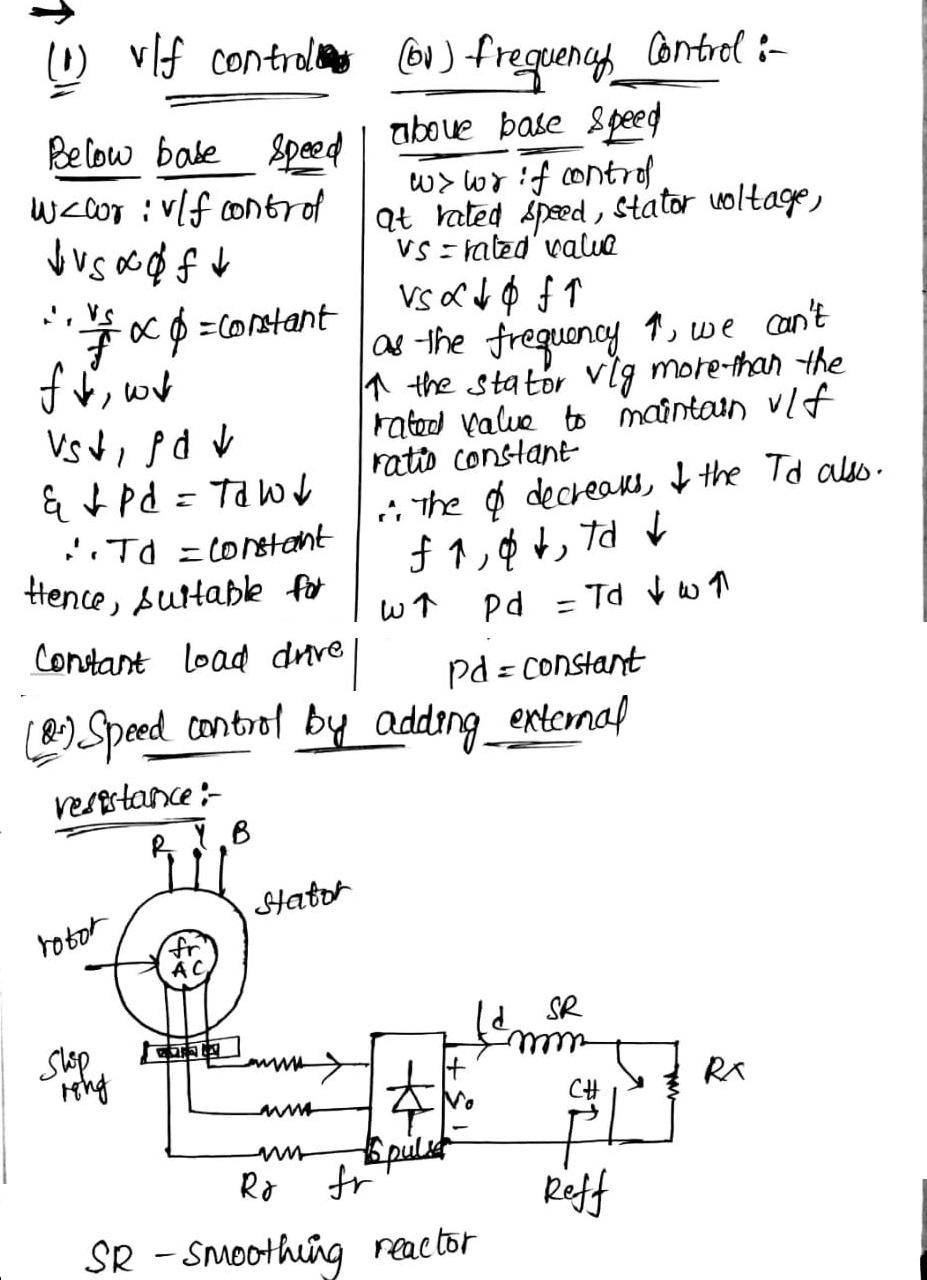 (1) v/f control (or) frequency control :-
Below base speed
w<wr : v/f control
↓Vs ∝ φ f ↓
∴ Vs/f ∝ φ = constant
f ↓, w↓
Vs↓, Pd ↓
& ↓ Pd = Td w↓
∴ Td = constant
Hence, suitable for
Constant load drive
above base speed
w>wr : f control
at rated speed, stator voltage,
Vs = rated value
Vs ∝ ↓ φ f ↑
as the frequency ↑, we can't
↑ the stator vlg more than the
rated value to maintain v/f
ratio constant
∴ The φ decreases, ↓ the Td also.
f ↑, φ ↓, Td ↓
w↑ Pd = Td ↓ w ↑
Pd = constant
(2) Speed control by adding external
resistance :-
R Y B
stator
rotor
fr
AC
Slip
ring
Id SR
+
Vo
-
CH
Rx
6 pulse
Rr fr
Reff
SR - Smoothing reactor